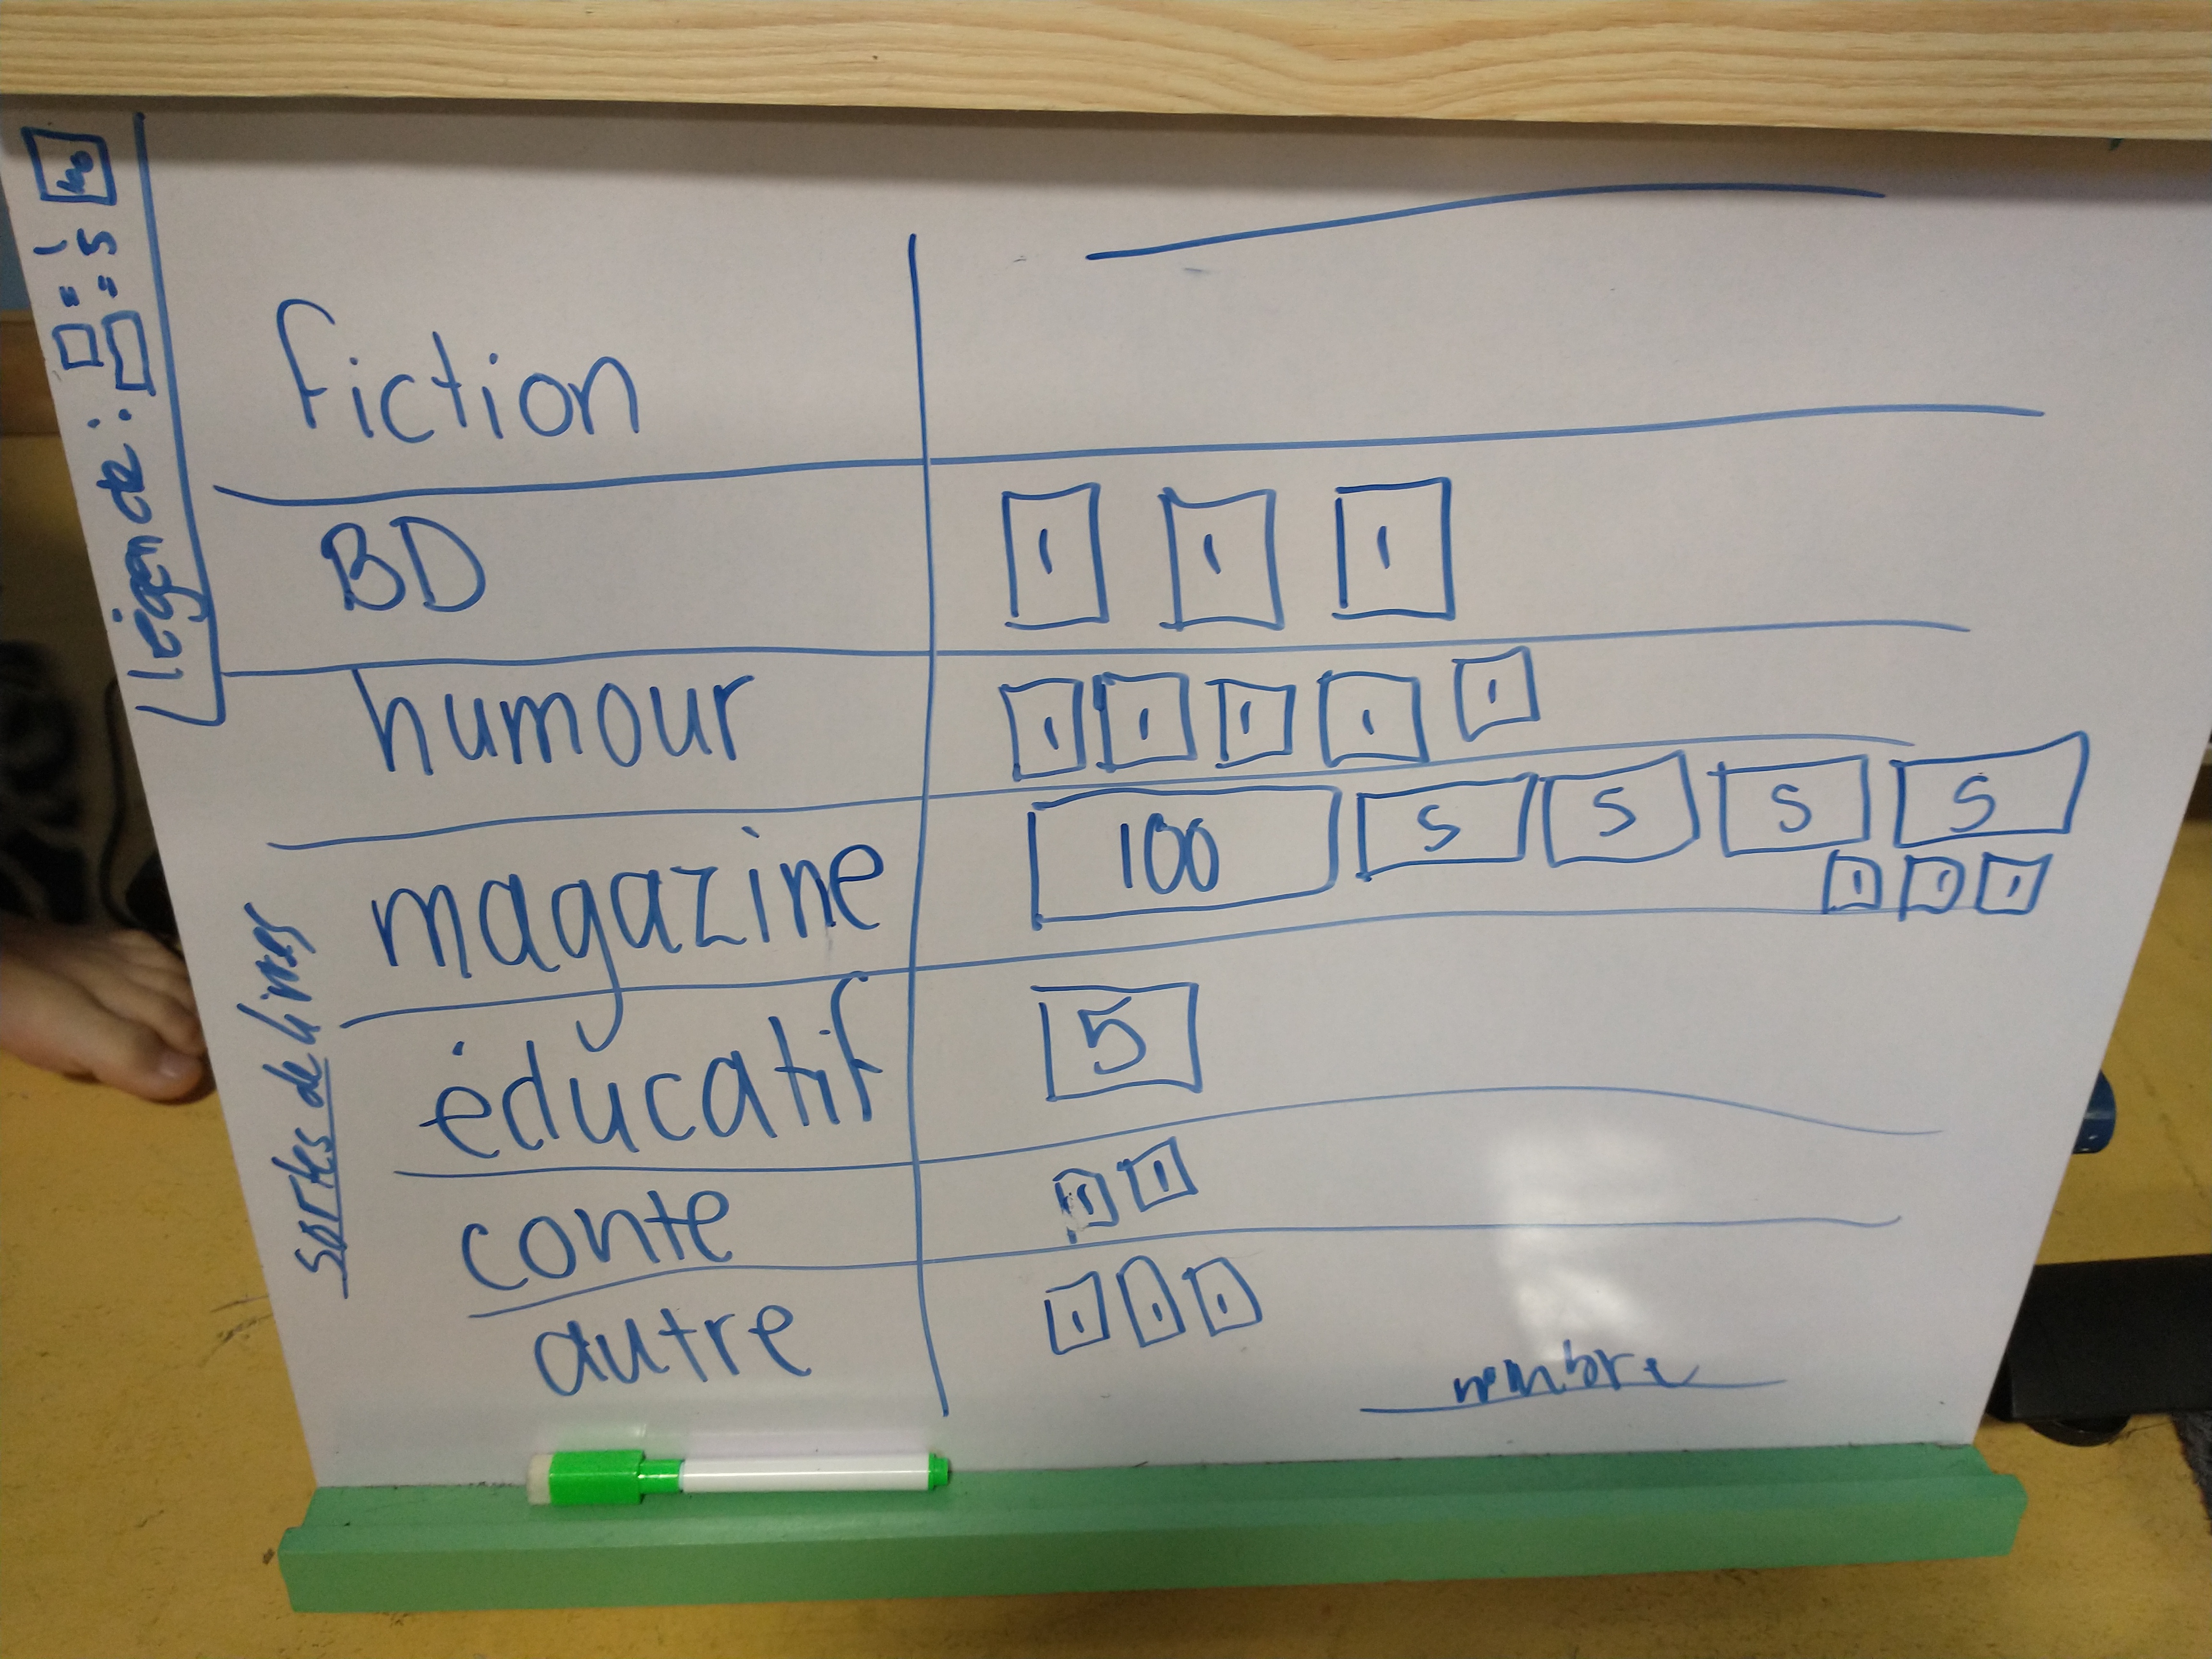 Légende: □ = 1
□ = 5
100
fiction
BD 1 1 1
humour 1 1 1 1 1
magazine 100 5 5 5 5
1 1 1
éducatif 5
conte 1 1
autre 1 1 1
Sortes de livres
nombre